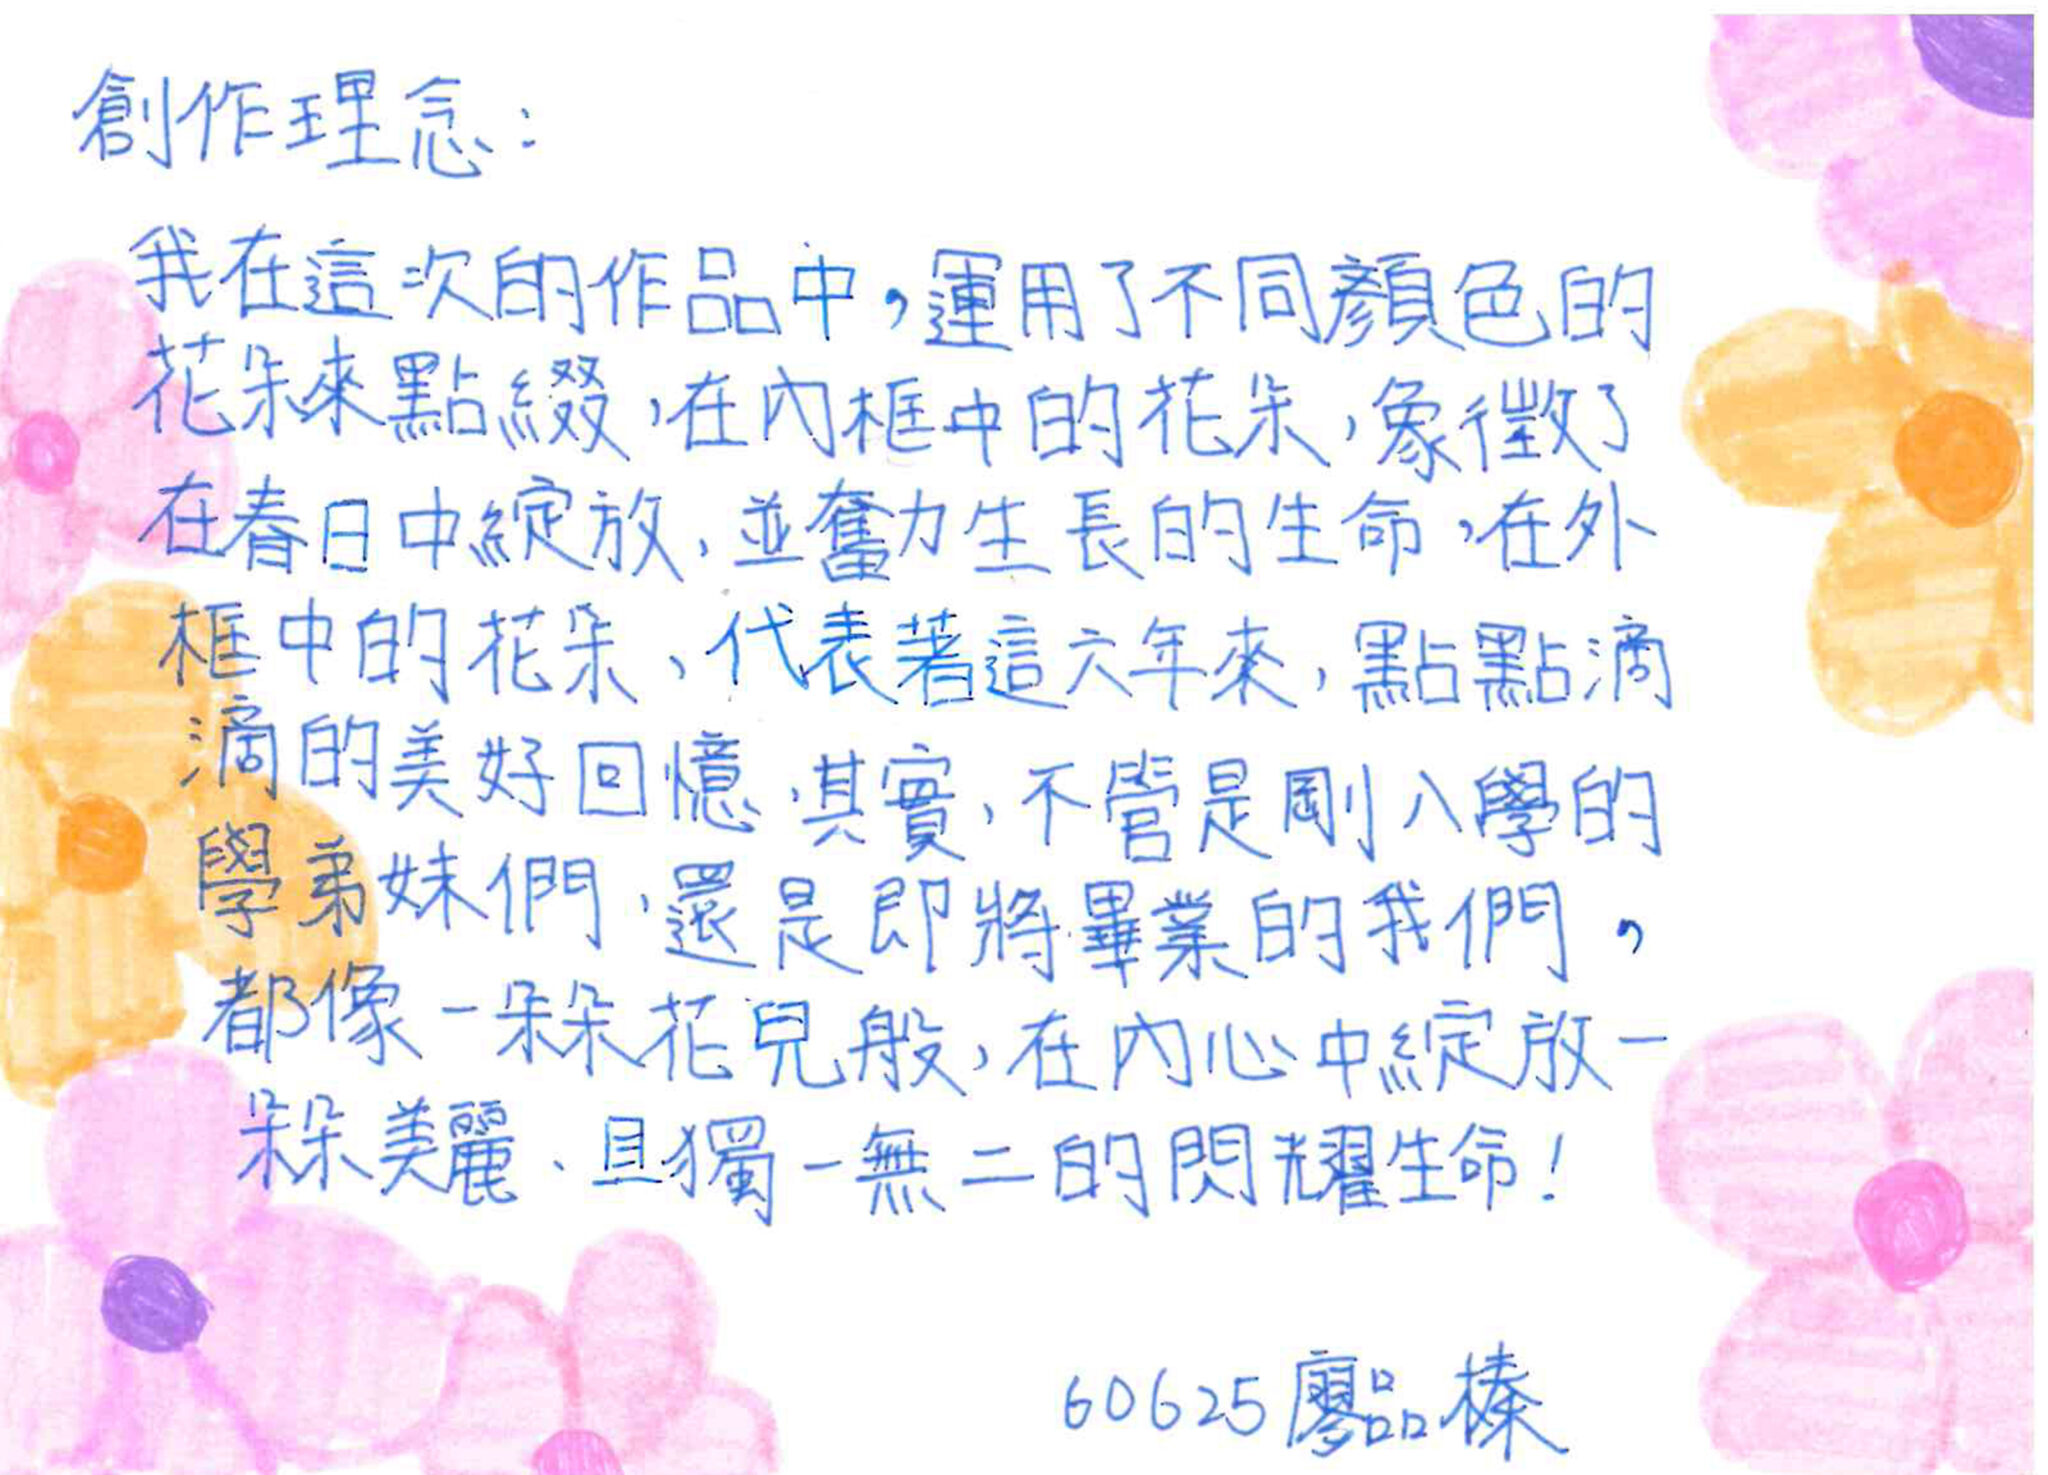 創作理念：
我在這次的作品中，運用了不同顏色的
花朵來點綴，在內框中的花朵，象徵了
在春日中綻放，並奮力生長的生命，在外
框中的花朵，代表著這六年來，點點滴
滴的美好回憶，其實，不管是剛入學的
學弟妹們，還是即將畢業的我們，
都像一朵朵花兒般，在內心中綻放一
朵朵美麗、且獨一無二的閃耀生命！
60625廖品榛